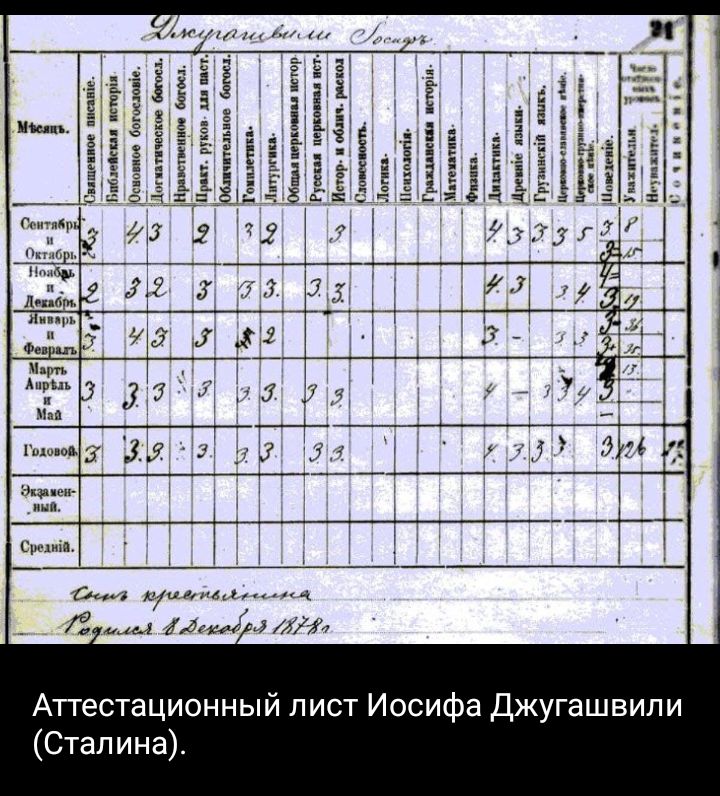 Джугашвили Іосифъ
31
Мѣсяцъ.
Священное писаніе.
Библейская исторія.
Основное богословіе.
Догматическое богосл.
Нравственное богосл.
Практ. руков. для паст.
Обличительное богосл.
Гомилетика.
Литургика.
Общая церковная истор.
Русская церковная ист.
Истор. и облич. раскол
Словесность.
Логика.
Психологія.
Гражданская исторія.
Математика.
Физика.
Дидактика.
Древніе языки.
Грузинскій языкъ.
Поведеніе.
Уважительн.
Неуважител.
Сочиненіе.
Сентябрь и Октябрь 3 4 3 2 3 2 3. 4. 3 3. 3 5 3 8
3= 15
Ноябрь и Декабрь 2 3 2 3 3. 3. 3. 3. 4. 3 3. 4. 4=
3. 19
Январь и Февраль 3. 4 3. 3 2 3. - 3 3 3- 36
3+ 35
Мартъ Апрѣль и Май 3 3. 3 3. 3. 3. 3 3. 4 - 3 3 4 3 13
Годовой. 3. 3. 3. 3. 3. 3. 3 3. 4. 3. 3 3 3. 126
Экзамен-
ный.
Средній.
Сынъ крестьянина
Родился 8 Декабря 1878 г.
Аттестационный лист Иосифа Джугашвили
(Сталина).